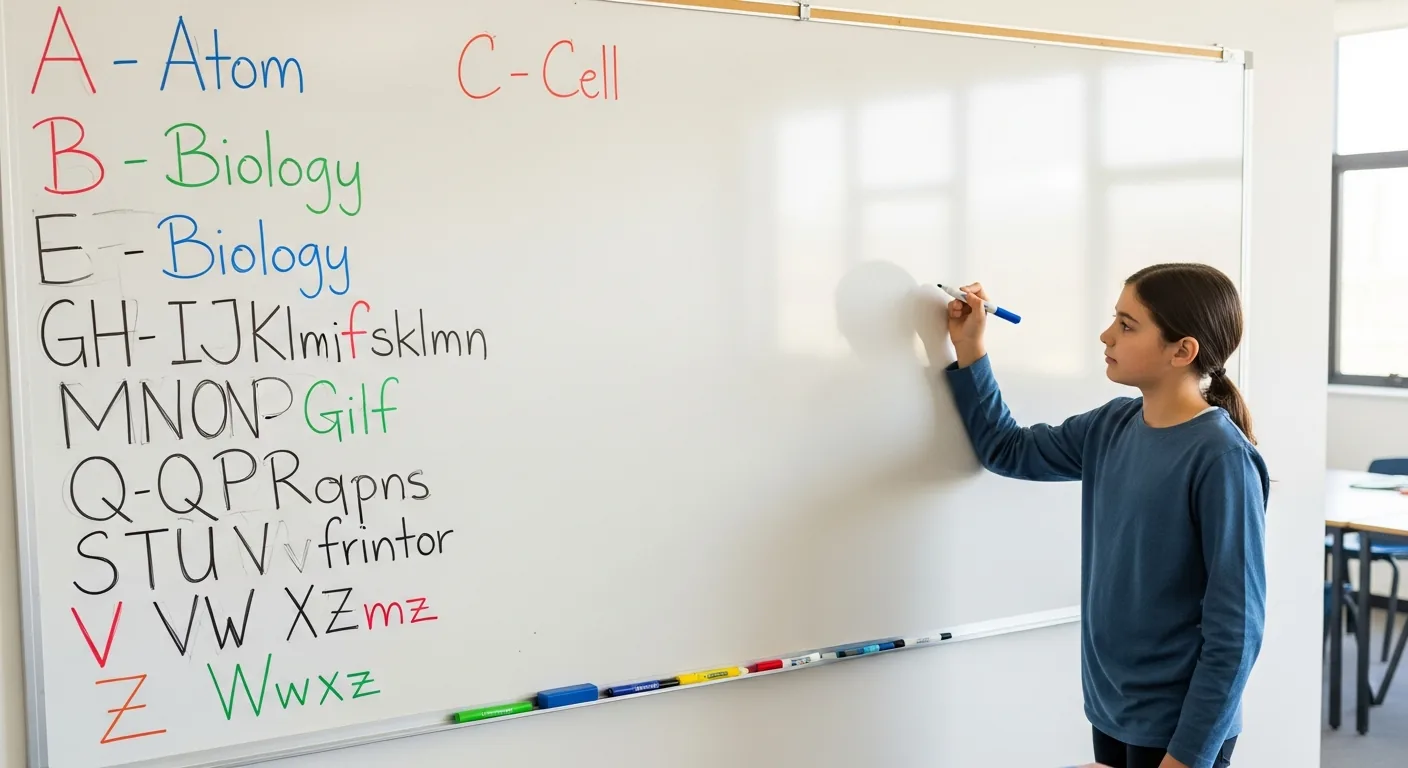 A - Atom
C - Cell
B - Biology
E - Biology
GH- IJKlmifsklmn
MNONP Gilf
Q-QPRqpns
STUV v frintor
V VW XZmz
Z Wwxz